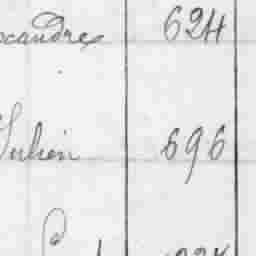 xandre 624
Julien 696